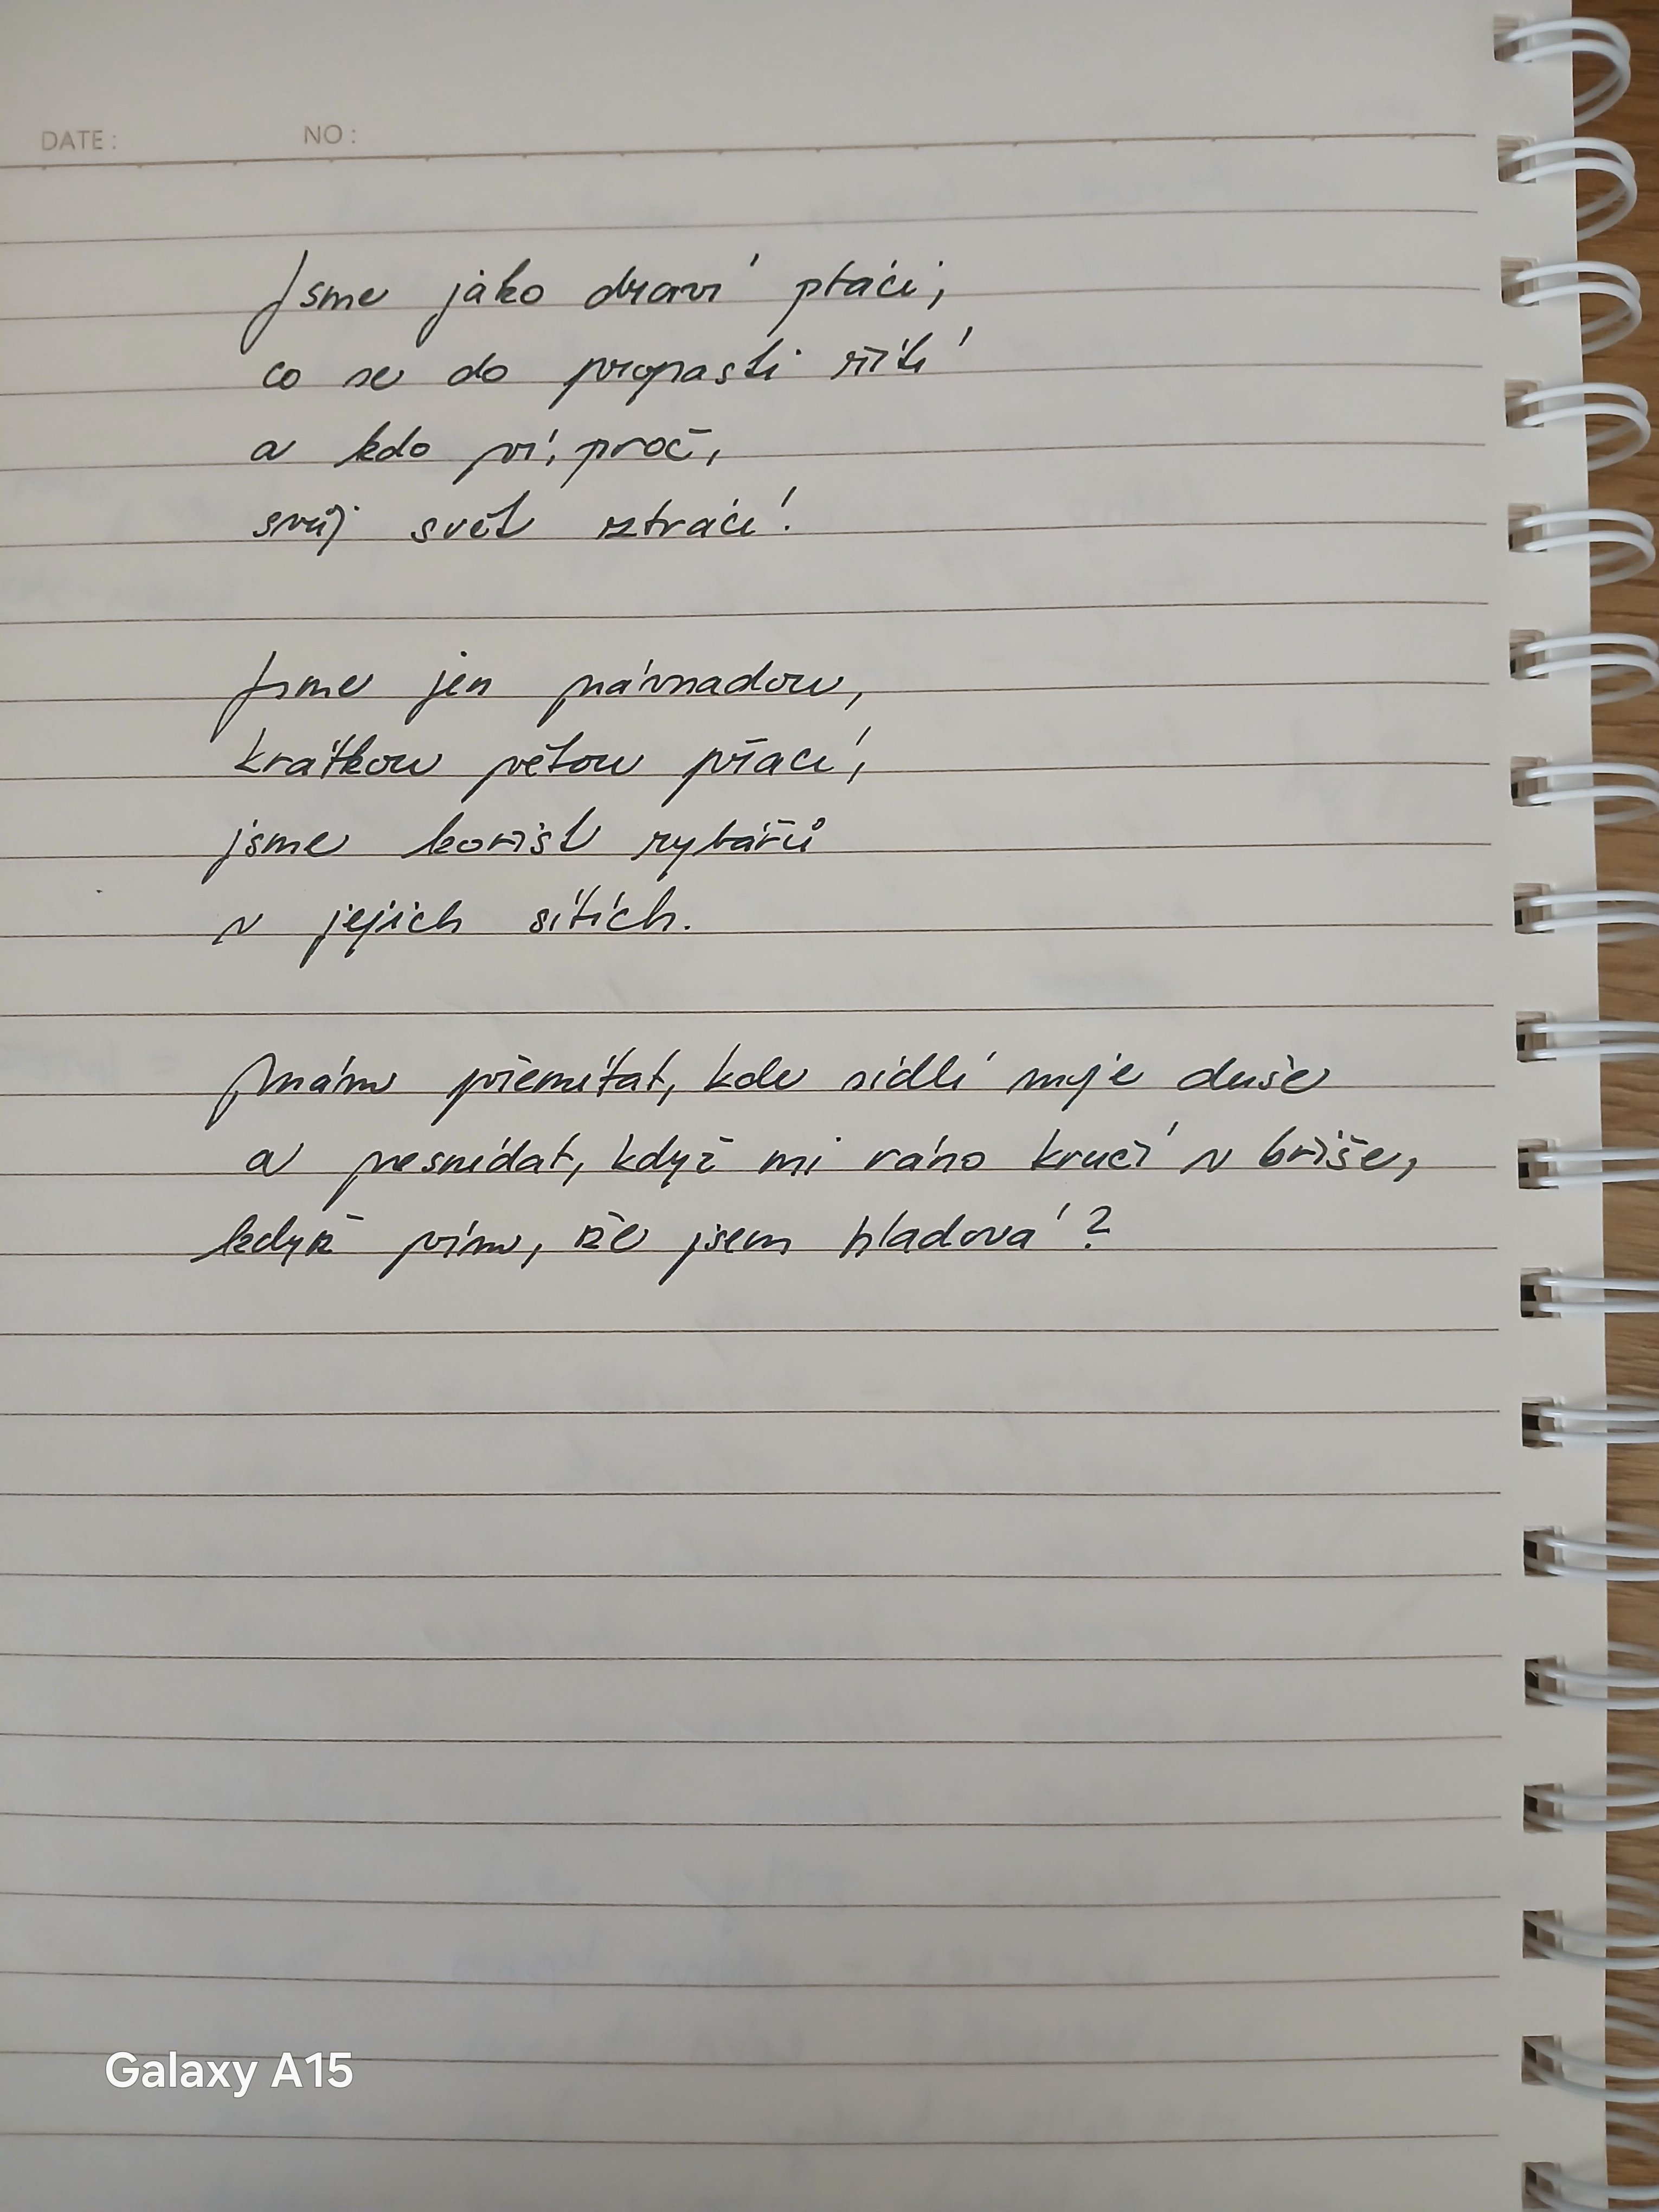 DATE: NO:
Jsme jako draví ptáci,
co se do propasti řítí
a kdo ví, proč,
svůj svět ztrácí.
Jsme jen návnadou,
krátkou větou přací,
jsme kořist rybářů
v jejich sítích.
přemítat, kde sídlí moje duše
a nesnídat, když mi ráno kručí v břiše,
když vím, že jsem hladová?
Galaxy A15